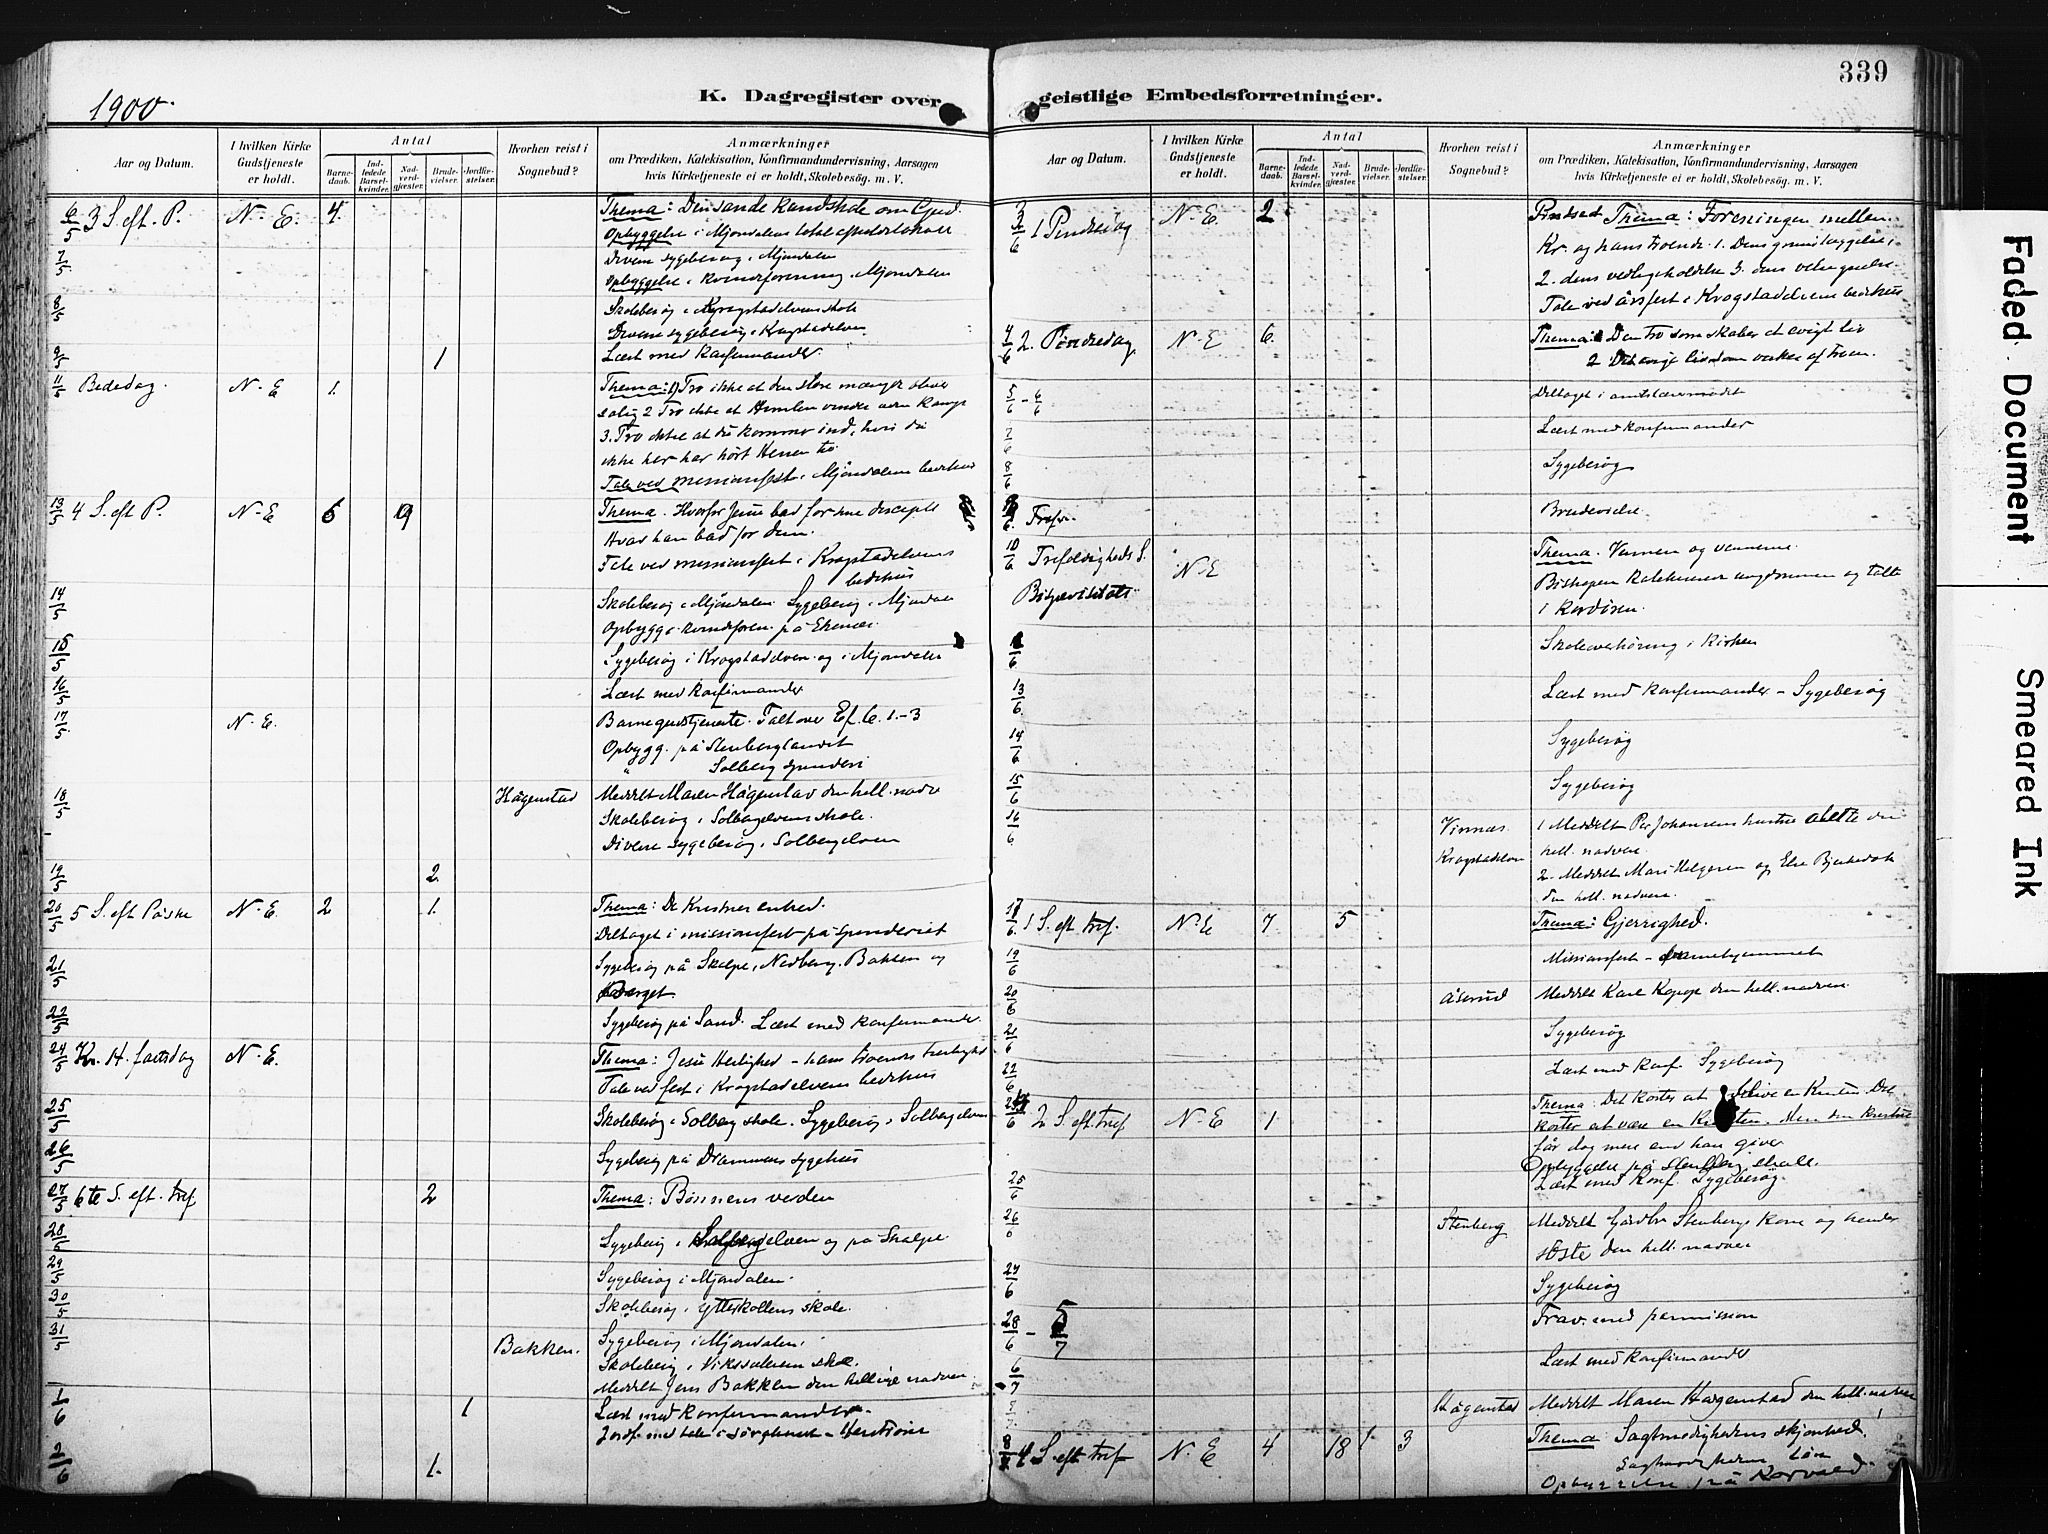 339
1900.
K. Dagregister over geistlige Embedsforretninger.
Aar og Datum.
I hvilken Kirke Gudstjeneste er holdt.
Antal
Barnedaab.
Indledede Barselkvinder.
Nadverdgjæster.
Brudevielser.
Jordfæstelser.
Hvorhen reist i Sognebud?
Anmærkninger
om Prædiken, Katekisation, Konfirmandundervisning, Aarsagen
hvis Kirketjeneste ei er holdt, Skolebesøg. m. V.
6/5 3 S. eft. P. N. E. 4. Thema: Den sande kundskab om Gud.
Opbyggelse i Mjøndalens
7/5 Divere sygebesøg i Mjøndalen
Opbyggelse i kvindeforening i Mjøndalen
8/5 Skolebesøg i Krogstadelvens skole
Divere sygebesøg i Krogstadelven
9/5 1 Læst med konfirmander.
11/5 Bededag N. E 1. Thema: 1) Tro ikke at den store mængde bliver
salig 2 Tro ikke at Himlen vindes uden kamp
3. Tro ikke at du kommer ind, hvis du
ikke her har hørt Herren til
Tale ved missionsfest i Mjøndalens bedehus
13/5 4 S. eft P. N. E 6 9 Thema. Hvorfor Jesus bad for sine disciple
Hvad han bad for dem.
Tale ved missionsfest i Krogstadelvens
bedehus
14/5 Skolebesøg i Mjøndalen Sygebesøg i Mjøndalen
Opbygg. i kvindeforen. på Ekenæs.
15/5 Sygebesøg i Krogstadelven og i Mjøndalen
16/5 Læst med konfirmander
17/5 N. E. Barnegudstjeneste. Talt over Ef. 6. 1-3
Opbygg. på Stenberglandet
" Solberg spinderi
18/5 Hågenstad Meddelt Maren Hågenstad den hell. nadv.
Skolebesøg i Solbergelvens skole.
Divere sygebesøg i Solbergelven
19/5 2.
20/5 5 S. eft Påske N. E. 2 1. Thema: De Kristnes enhed.
Deltaget i missionsfest på Spinderiet
21/5 Sygebesøg på Skalpe, Nedberg, Bakken og
Berget.
22/5 Sygebesøg på Sand. Læst med konfirmander.
24/5 Kr. H. fartsdag N. E. Thema: Jesu Herlighed – hans troendes herlighed
Tale ved fest i Krogstadelvens bedehus
25/5 Skolebesøg i Solberg skole. Sygebesøg i Solbergelven
26/5 Sygebesøg på Drammens sygehus
27/5 6te S. eft. tref 2 Thema: Bønnens verden
28/5 Sygebesøg i Solbergelven og på Skalpe.
29/5 Sygebesøg i Mjøndalen.
30/5 Skolebesøg i Ytterkollens skole.
31/5 Bakken. Sygebesøg i Mjøndalen.
Skolebesøg i skole.
Meddelt Jens Bakken den hellige nadver.
1/6 1 Læst med konfirmander.
Jordf. med tale i sørgehuset
2/6 1.
Aar og Datum.
I hvilken Kirke Gudstjeneste er holdt.
Antal
Barnedaab.
Indledede Barselkvinder.
Nadverdgjæster.
Brudevielser.
Jordfæstelser.
Hvorhen reist i Sognebud?
Anmærkninger
om Prædiken, Katekisation, Konfirmandundervisning, Aarsagen
hvis Kirketjeneste ei er holdt, Skolebesøg. m. V.
3/6 1 Pindsedag N. E. 2 Thema: Foreningen mellem
Kr. og hans troende. 1. Dens grundlæggelse,
2. dens vedligeholdelse 3. dens velsignelse.
Tale ved årsfest i Krogstadelvens bedehus
4/6 2. Pindsedag N. E 6. Thema: 1 Den tro som skaber et evigt liv
2 Det evige liv som virker af troen.
5/6 – 6/6 Deltaget i amtslærermødet
7/6 Læst med konfirmander
8/6 Sygebesøg
9/6. Brudevielse
10/6 Trefoldigheds S. N. E Thema. Vennen og vennerne.
Bispevisitats Bispen katekiserer ungdommen og talte
i kordøren.
/6 Skoleoverhøring i Kirken
13/6. Læst med konfirmander – Sygebesøg
14/6 Sygebesøg
15/6 Sygebesøg
16/6 Vinnæs. 1 Meddelt Per Johansens hustru den
Krogstadelven hell. nadvere.
2. Meddelt Mari Helgesen og Else
den hell. nadvere.
17/6 1 S. eft. tref. N. E 7 5 Thema: Gjerrighed.
19/6 Missionsfest –
20/6 Åserud Meddelt Karl Koppe den hell. nadver.
21/6 Sygebesøg
22/6 Læst med Konf. Sygebesøg
24/6 2 S. eft. tref N. E 1. Thema. Det koster at blive en Kristen Det
koster at være en Kristen. Men den kristne
får dog mere end han giver
Opbyggelse på Stenberg skole.
25/6 Læst med Konf. Sygebesøg.
26/6 Stenberg Meddelt Stenbergs kone og hendes
søster den hell. nadver
27/6 Sygebesøg
28/6 – 5/7 Frav. med permission
6/7 Læst med konfirmander
Hågenstad Meddelt Maren Hågenstad den hell. nadver
8/7 4 S. eft tref N. E 4 18 1 3 Thema Sagtmodighedens skjønhed,
Sagtmodighedens løn
Opbyggelse på Korvald.
Faded Document
Smeared Ink